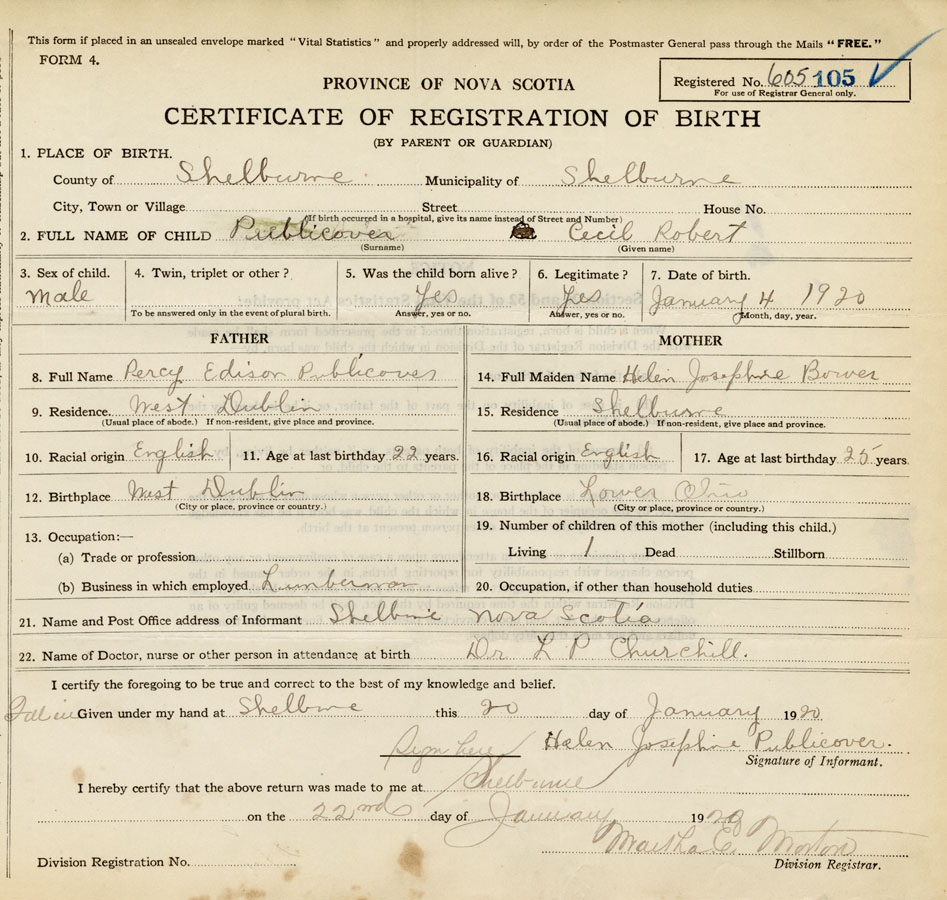 This form if placed in an unsealed envelope marked "Vital Statistics" and properly addressed will, by order of the Postmaster General pass through the Mails "FREE."
FORM 4.
Registered No. 605 105
For use of Registrar General only.
PROVINCE OF NOVA SCOTIA
CERTIFICATE OF REGISTRATION OF BIRTH
(BY PARENT OR GUARDIAN)
1. PLACE OF BIRTH.
County of Shelburne Municipality of Shelburne
City, Town or Village Street House No.
(If birth occurred in a hospital, give its name instead of Street and Number)
2. FULL NAME OF CHILD Publicover Cecil Robert
(Surname) (Given name)
3. Sex of child. 4. Twin, triplet or other? 5. Was the child born alive? 6. Legitimate? 7. Date of birth.
male Yes Yes January 4 1920
To be answered only in the event of plural birth. Answer, yes or no. Answer, yes or no. Month, day, year.
FATHER MOTHER
8. Full Name Percy Edison Publicover 14. Full Maiden Name Helen Josephine Bower
9. Residence. West Dublin 15. Residence Shelburne
(Usual place of abode.) If non-resident, give place and province. (Usual place of abode.) If non-resident, give place and province.
10. Racial origin English 11. Age at last birthday 22 years. 16. Racial origin English 17. Age at last birthday 25 years.
12. Birthplace West Dublin 18. Birthplace Lower Ohio
(City or place, province or country.) (City or place, province or country.)
13. Occupation:— 19. Number of children of this mother (including this child.)
(a) Trade or profession Living 1 Dead Stillborn
(b) Business in which employed Lumberman 20. Occupation, if other than household duties
21. Name and Post Office address of Informant Shelburne Nova Scotia
22. Name of Doctor, nurse or other person in attendance at birth Dr L P Churchill.
I certify the foregoing to be true and correct to the best of my knowledge and belief.
Given under my hand at Shelburne this 20 day of January 1920
Sign here Helen Josephine Publicover.
Signature of Informant.
I hereby certify that the above return was made to me at Shelburne
on the 22nd day of January 1920
Martha E. Morton
Division Registration No. Division Registrar.